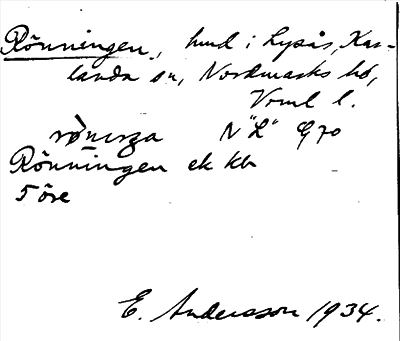 Rönningen, hmd i Lysås, Kar-
landa sn, Nordmarks hd,
Vrml l.
N "L" G 70
Rönningen ek kb
5 öre
E. Andersson 1934.